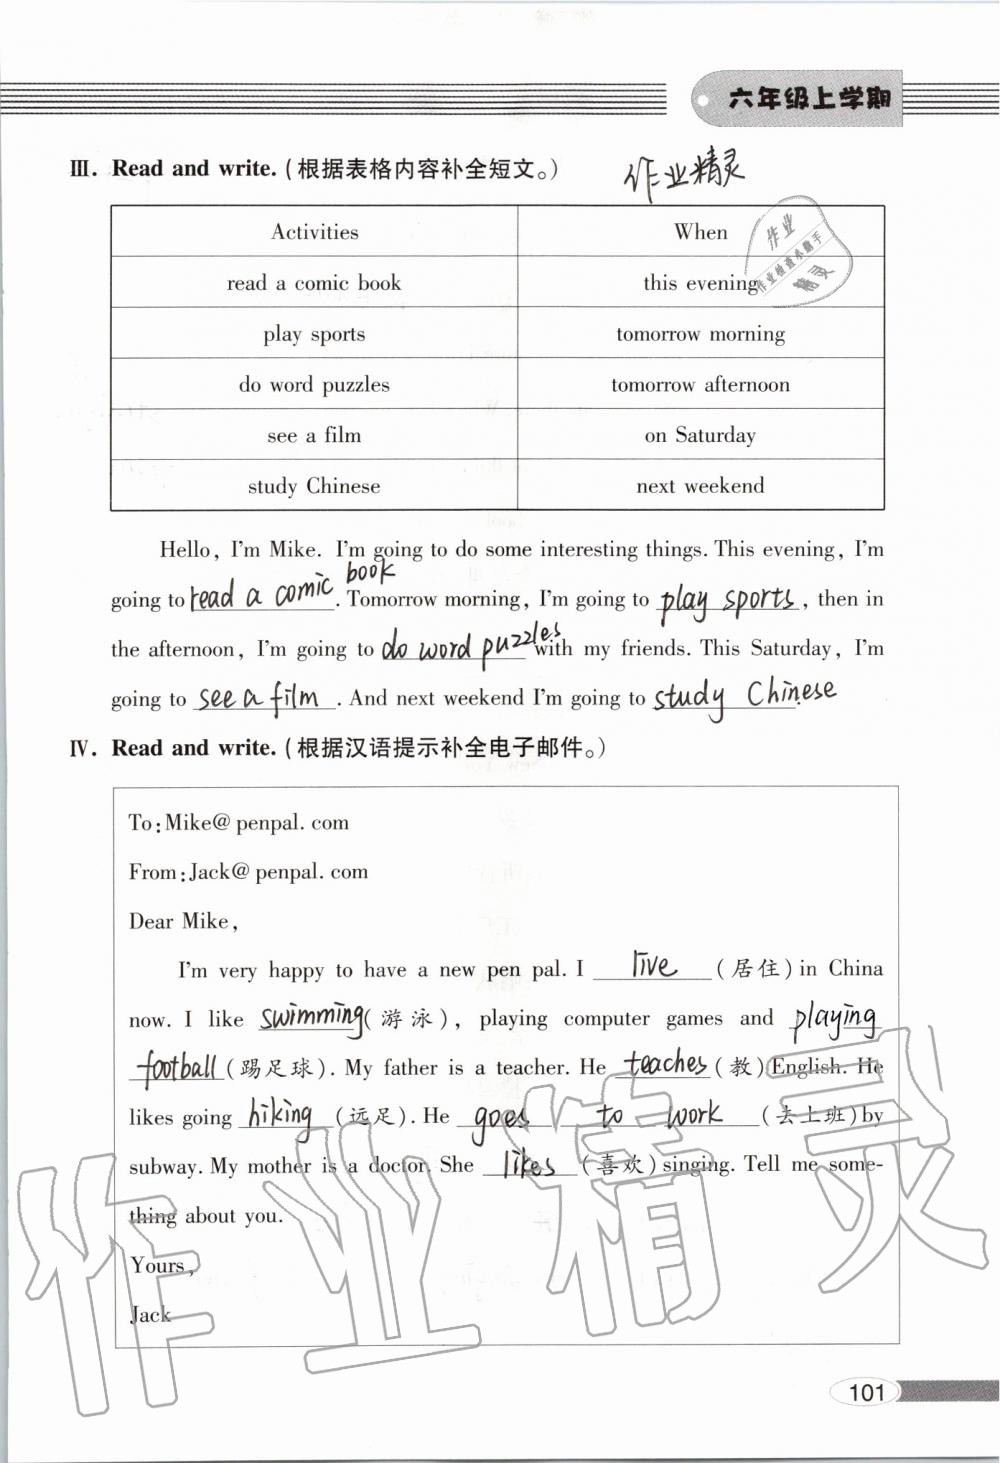 六年级上学期
Ⅲ. Read and write.(根据表格内容补全短文。)
作业精灵
Activities When
read a comic book this evening
play sports tomorrow morning
do word puzzles tomorrow afternoon
see a film on Saturday
study Chinese next weekend
作业
作业检查小助手
精灵
Hello, I'm Mike. I'm going to do some interesting things. This evening, I'm
going to read a comic book. Tomorrow morning, I'm going to play sports, then in
the afternoon, I'm going to do word puzzles with my friends. This Saturday, I'm
going to see a film. And next weekend I'm going to study Chinese.
Ⅳ. Read and write.(根据汉语提示补全电子邮件。)
To:Mike@penpal.com
From:Jack@penpal.com
Dear Mike,
I'm very happy to have a new pen pal. I live (居住) in China
now. I like swimming (游泳), playing computer games and playing
football (踢足球). My father is a teacher. He teaches (教) English. He
likes going hiking (远足). He goes to work (去上班) by
subway. My mother is a doctor. She likes (喜欢) singing. Tell me some-
thing about you.
Yours,
Jack
作业精灵
101